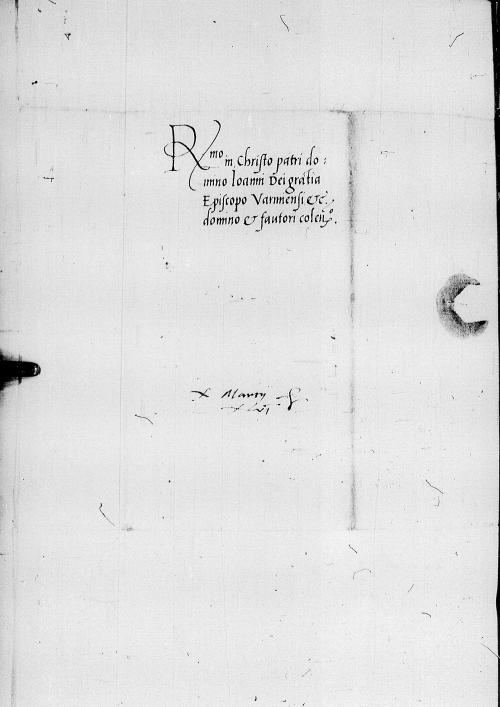 Rmo in Christo patri do:
mno Ioanni Dei gratia
Episcopo Varmensi &c.
domino & fautori colen.o
x Martij
xlvj